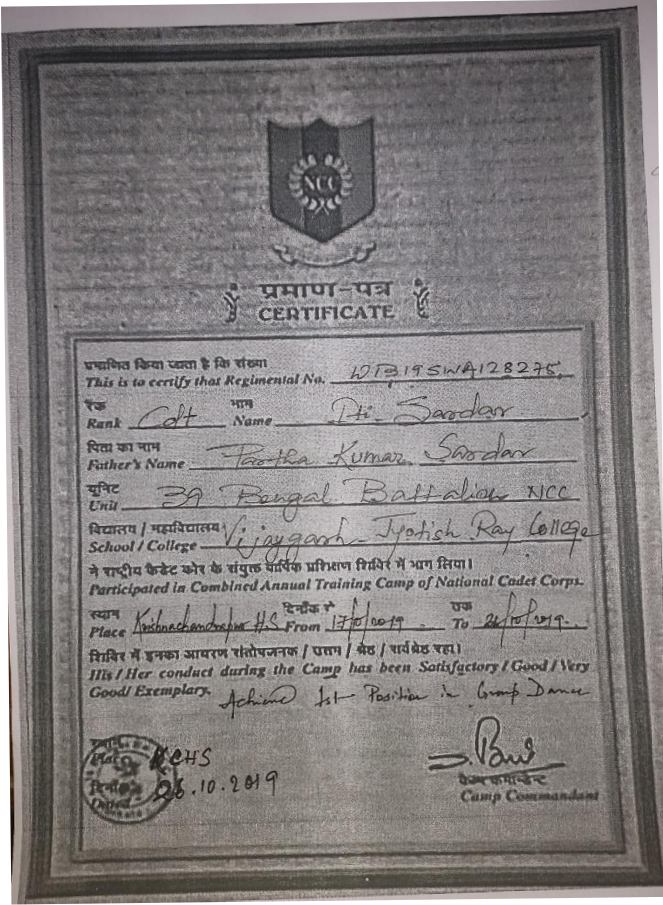 NCC
प्रमाण-पत्र
CERTIFICATE
प्रमाणित किया जाता है कि संख्या
This is to certify that Regimental No. WB19SWA128275
रैंक नाम
Rank Cdt Name Sardar
पिता का नाम
Father's Name Partha Kumar Sardar
यूनिट
Unit 39 Bengal Battalion NCC
विद्यालय / महाविद्यालय
School / College Vijaygarh Jyotish Ray College
ने राष्ट्रीय कैडेट कोर के संयुक्त वार्षिक प्रशिक्षण शिविर में भाग लिया।
Participated in Combined Annual Training Camp of National Cadet Corps.
स्थान दिनाँक से तक
Place Krishnachandrapur H.S From 17/10/2019 To /10/2019
शिविर में इनका आचरण संतोषजनक / उत्तम / श्रेष्ठ / सर्वश्रेष्ठ रहा।
His / Her conduct during the Camp has been Satisfactory / Good / Very
Good/ Exemplary.
Achieved 1st Position in Group Dance
KCHS
दिनाँक
Dated 26.10.2019
कैम्प कमान्डेन्ट
Camp Commandant